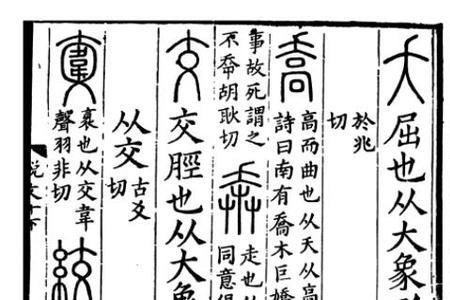 夭 屈也从大象
於兆
切
喬 高而曲也从夭从高
詩曰南有喬木巨嬌
事故死謂之
不㚔胡耿切
奔 走也从
同意俱
交 交脛也从大象
从交 古爻
切
衺也从交韋
聲羽非切
絞
说文十下